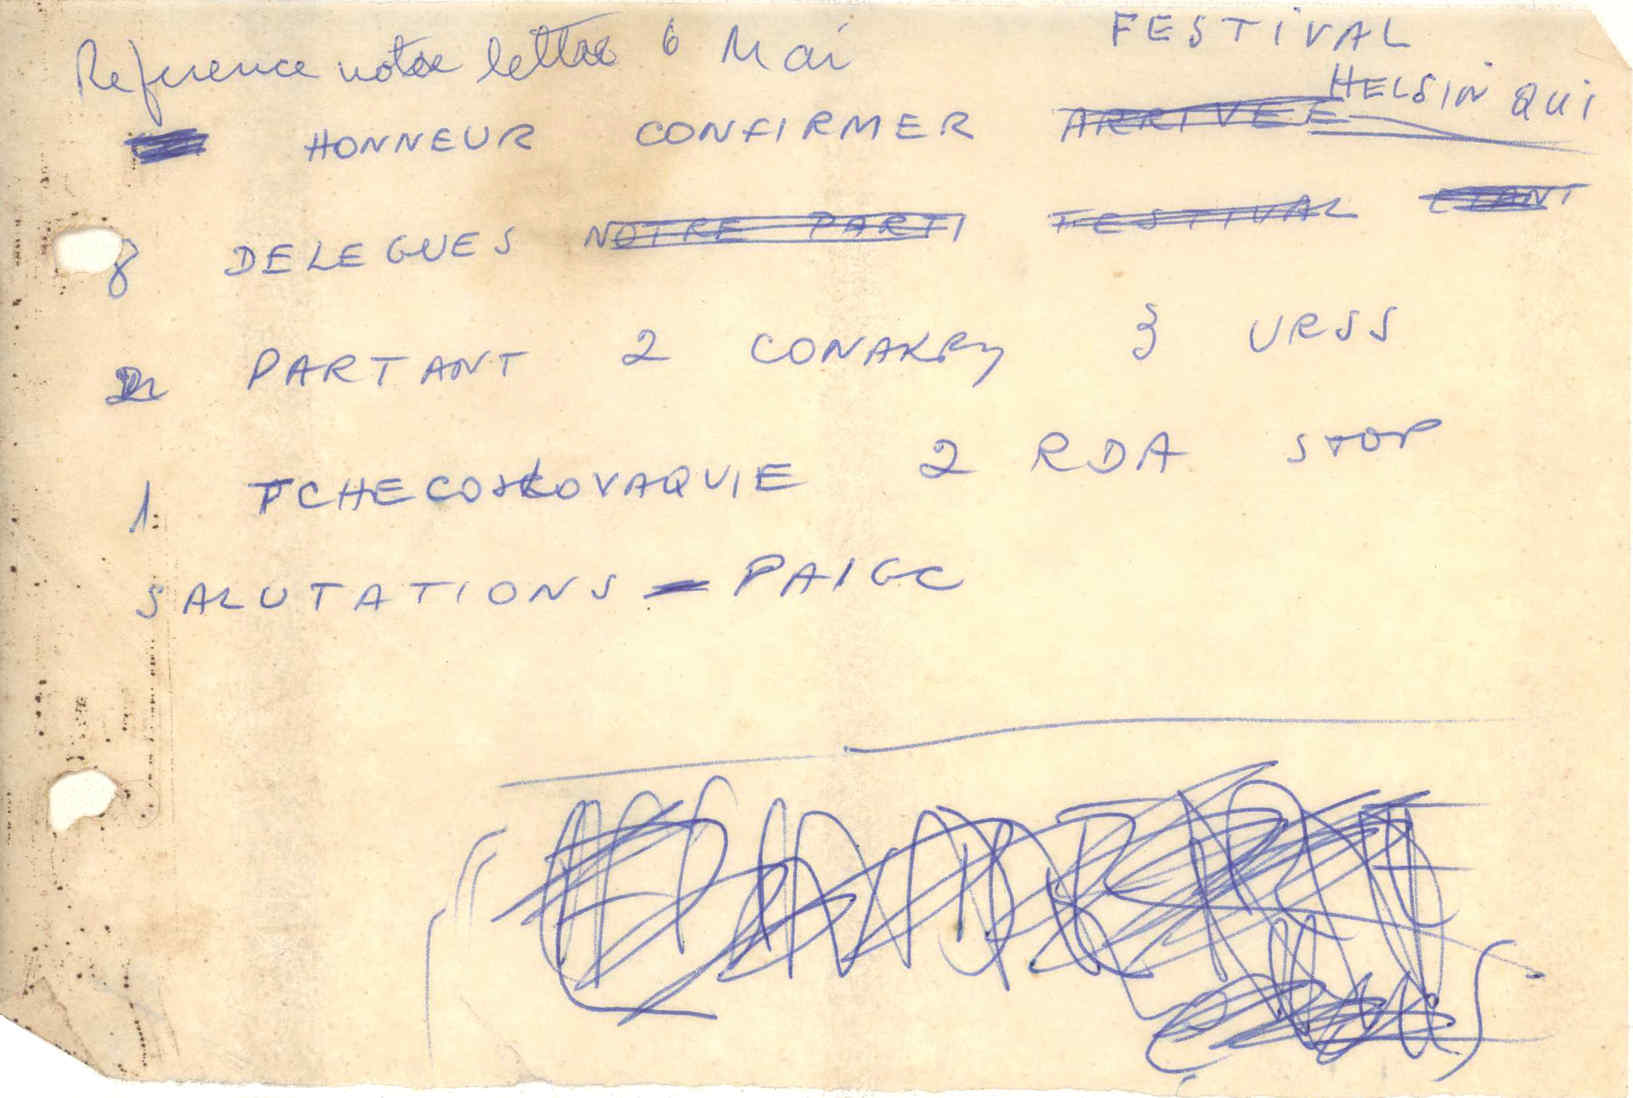 Reference notre lettre 6 Mai FESTIVAL
HONNEUR CONFIRMER ARRIVEE HELSINQUI
8 DELEGUES NOTRE PARTI FESTIVAL ETANT
PARTANT 2 CONAKRY 3 URSS
1 TCHECOSLOVAQUIE 2 RDA STOP
SALUTATIONS - PAIGC